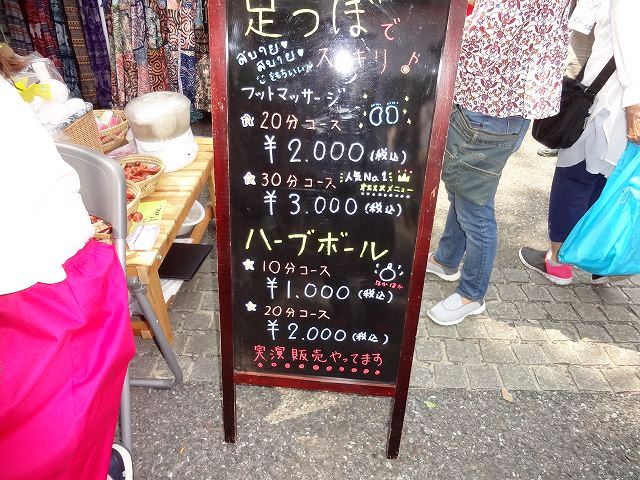 足つぼで
スッキリ♪
สบาย♥
สบาย♥
きもちいい
フットマッサージ
★20分コース
¥2.000(税込)
★30分コース
人気No.1
オススメメニュー
¥3.000(税込)
ハーブボール
★10分コース
ぽかぽか
¥1.000(税込)
★20分コース
¥2.000(税込)
実演販売やってます